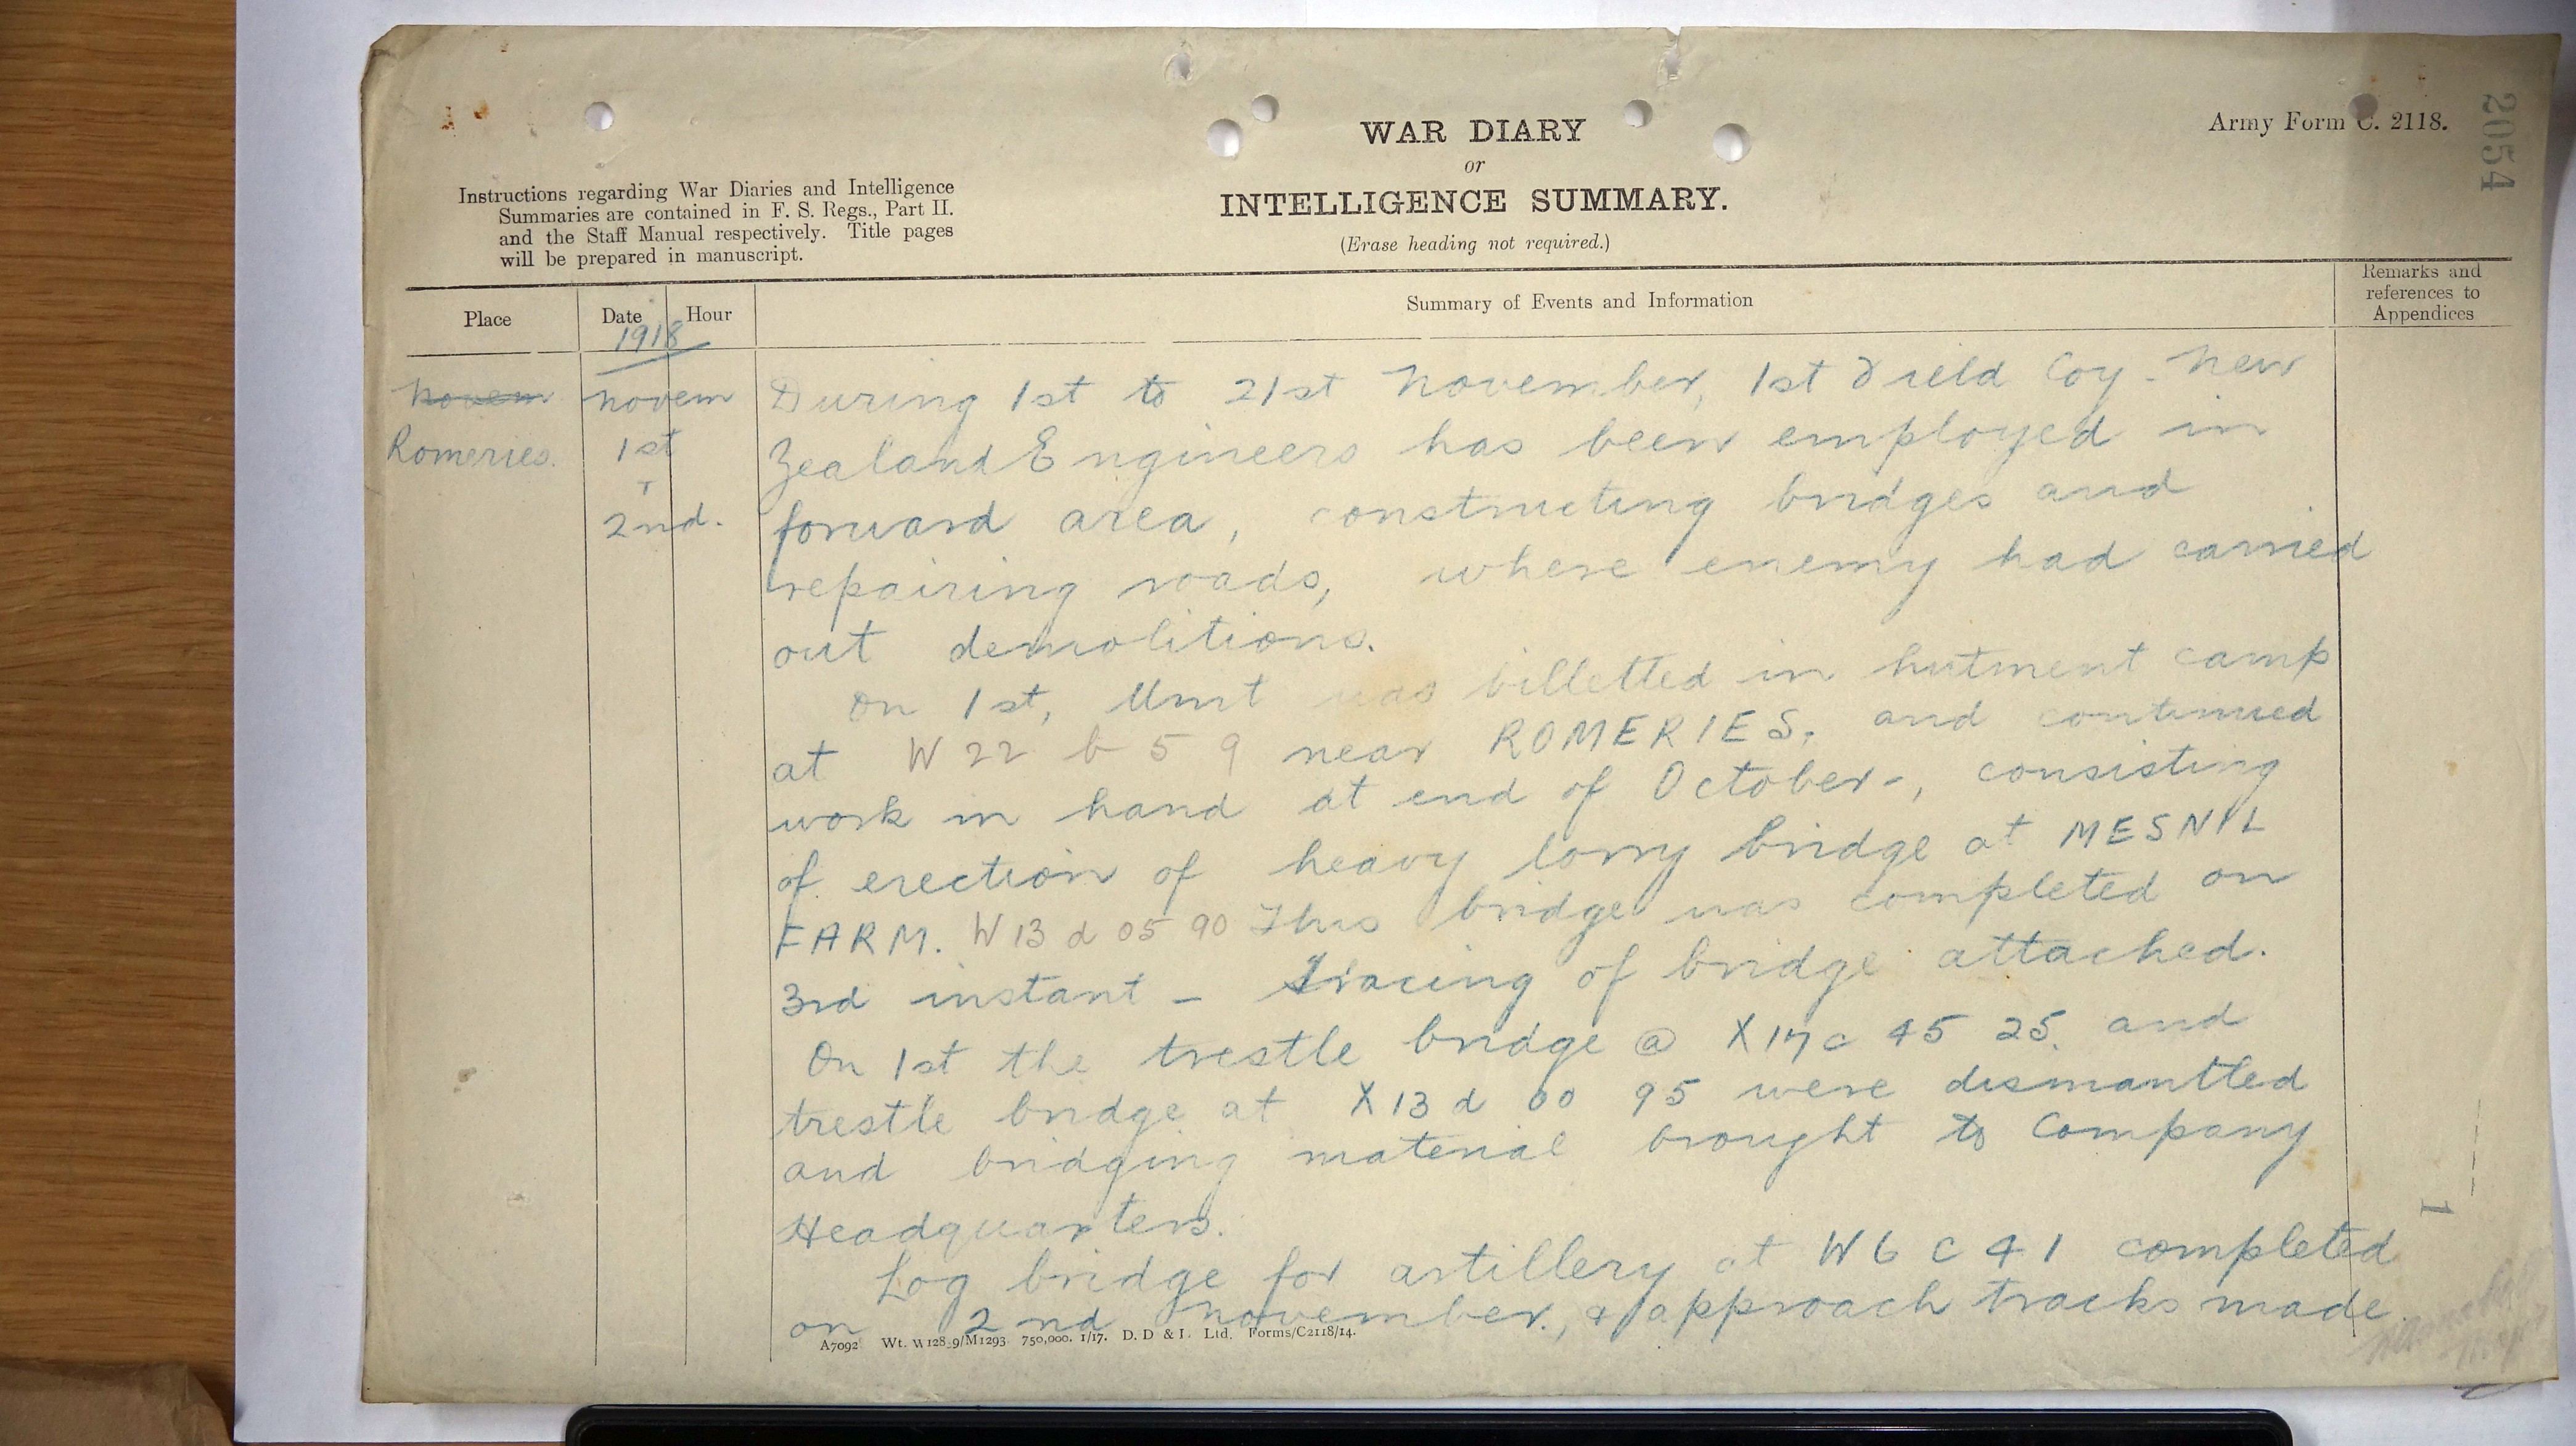 WAR DIARY
or
INTELLIGENCE SUMMARY.
(Erase heading not required.)
Army Form C. 2118.
2054
Instructions regarding War Diaries and Intelligence
Summaries are contained in F. S. Regs., Part II.
and the Staff Manual respectively. Title pages
will be prepared in manuscript.
Place
Date
Hour
Summary of Events and Information
Remarks and
references to
Appendices
1918
Novem
Romeries.
Novem
1st
2nd.
During 1st to 21st November, 1st Field Coy. New
Zealand Engineers has been employed in
forward area, constructing bridges and
repairing roads, where enemy had carried
out demolitions.
On 1st, Unit was billetted in hutment camp
at W 22 b 5 9 near ROMERIES. and continued
work in hand at end of October-, consisting
of erection of heavy lorry bridge at MESNIL
FARM. W 13 d 05 90 This bridge was completed on
3rd instant - Tracing of bridge attached.
On 1st the trestle bridge @ X 17 c 45 25. and
trestle bridge at X 13 d 60 95 were dismantled
and bridging material brought to Company
Headquarters.
Log bridge for artillery at W 6 c 4 1 completed
on 2nd November., & approach tracks made
1
A7092 Wt. W128 9/M1293 750,000. 1/17. D. D & L. Ltd. Forms/C2118/14.